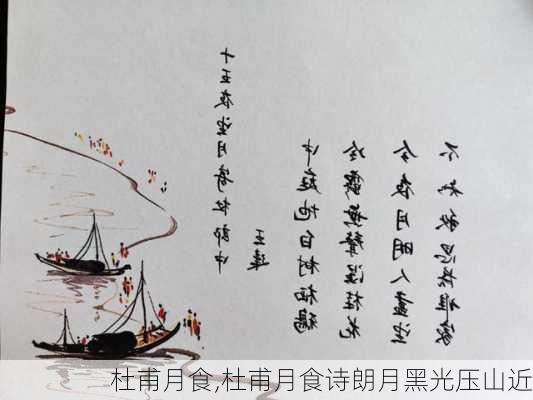 十五夜望月寄杜郎中
王建
中庭地白树栖鸦
冷露無聲濕桂花
今夜月明人盡望
不知秋思落誰家
杜甫月食,杜甫月食诗朗月黑光压山近